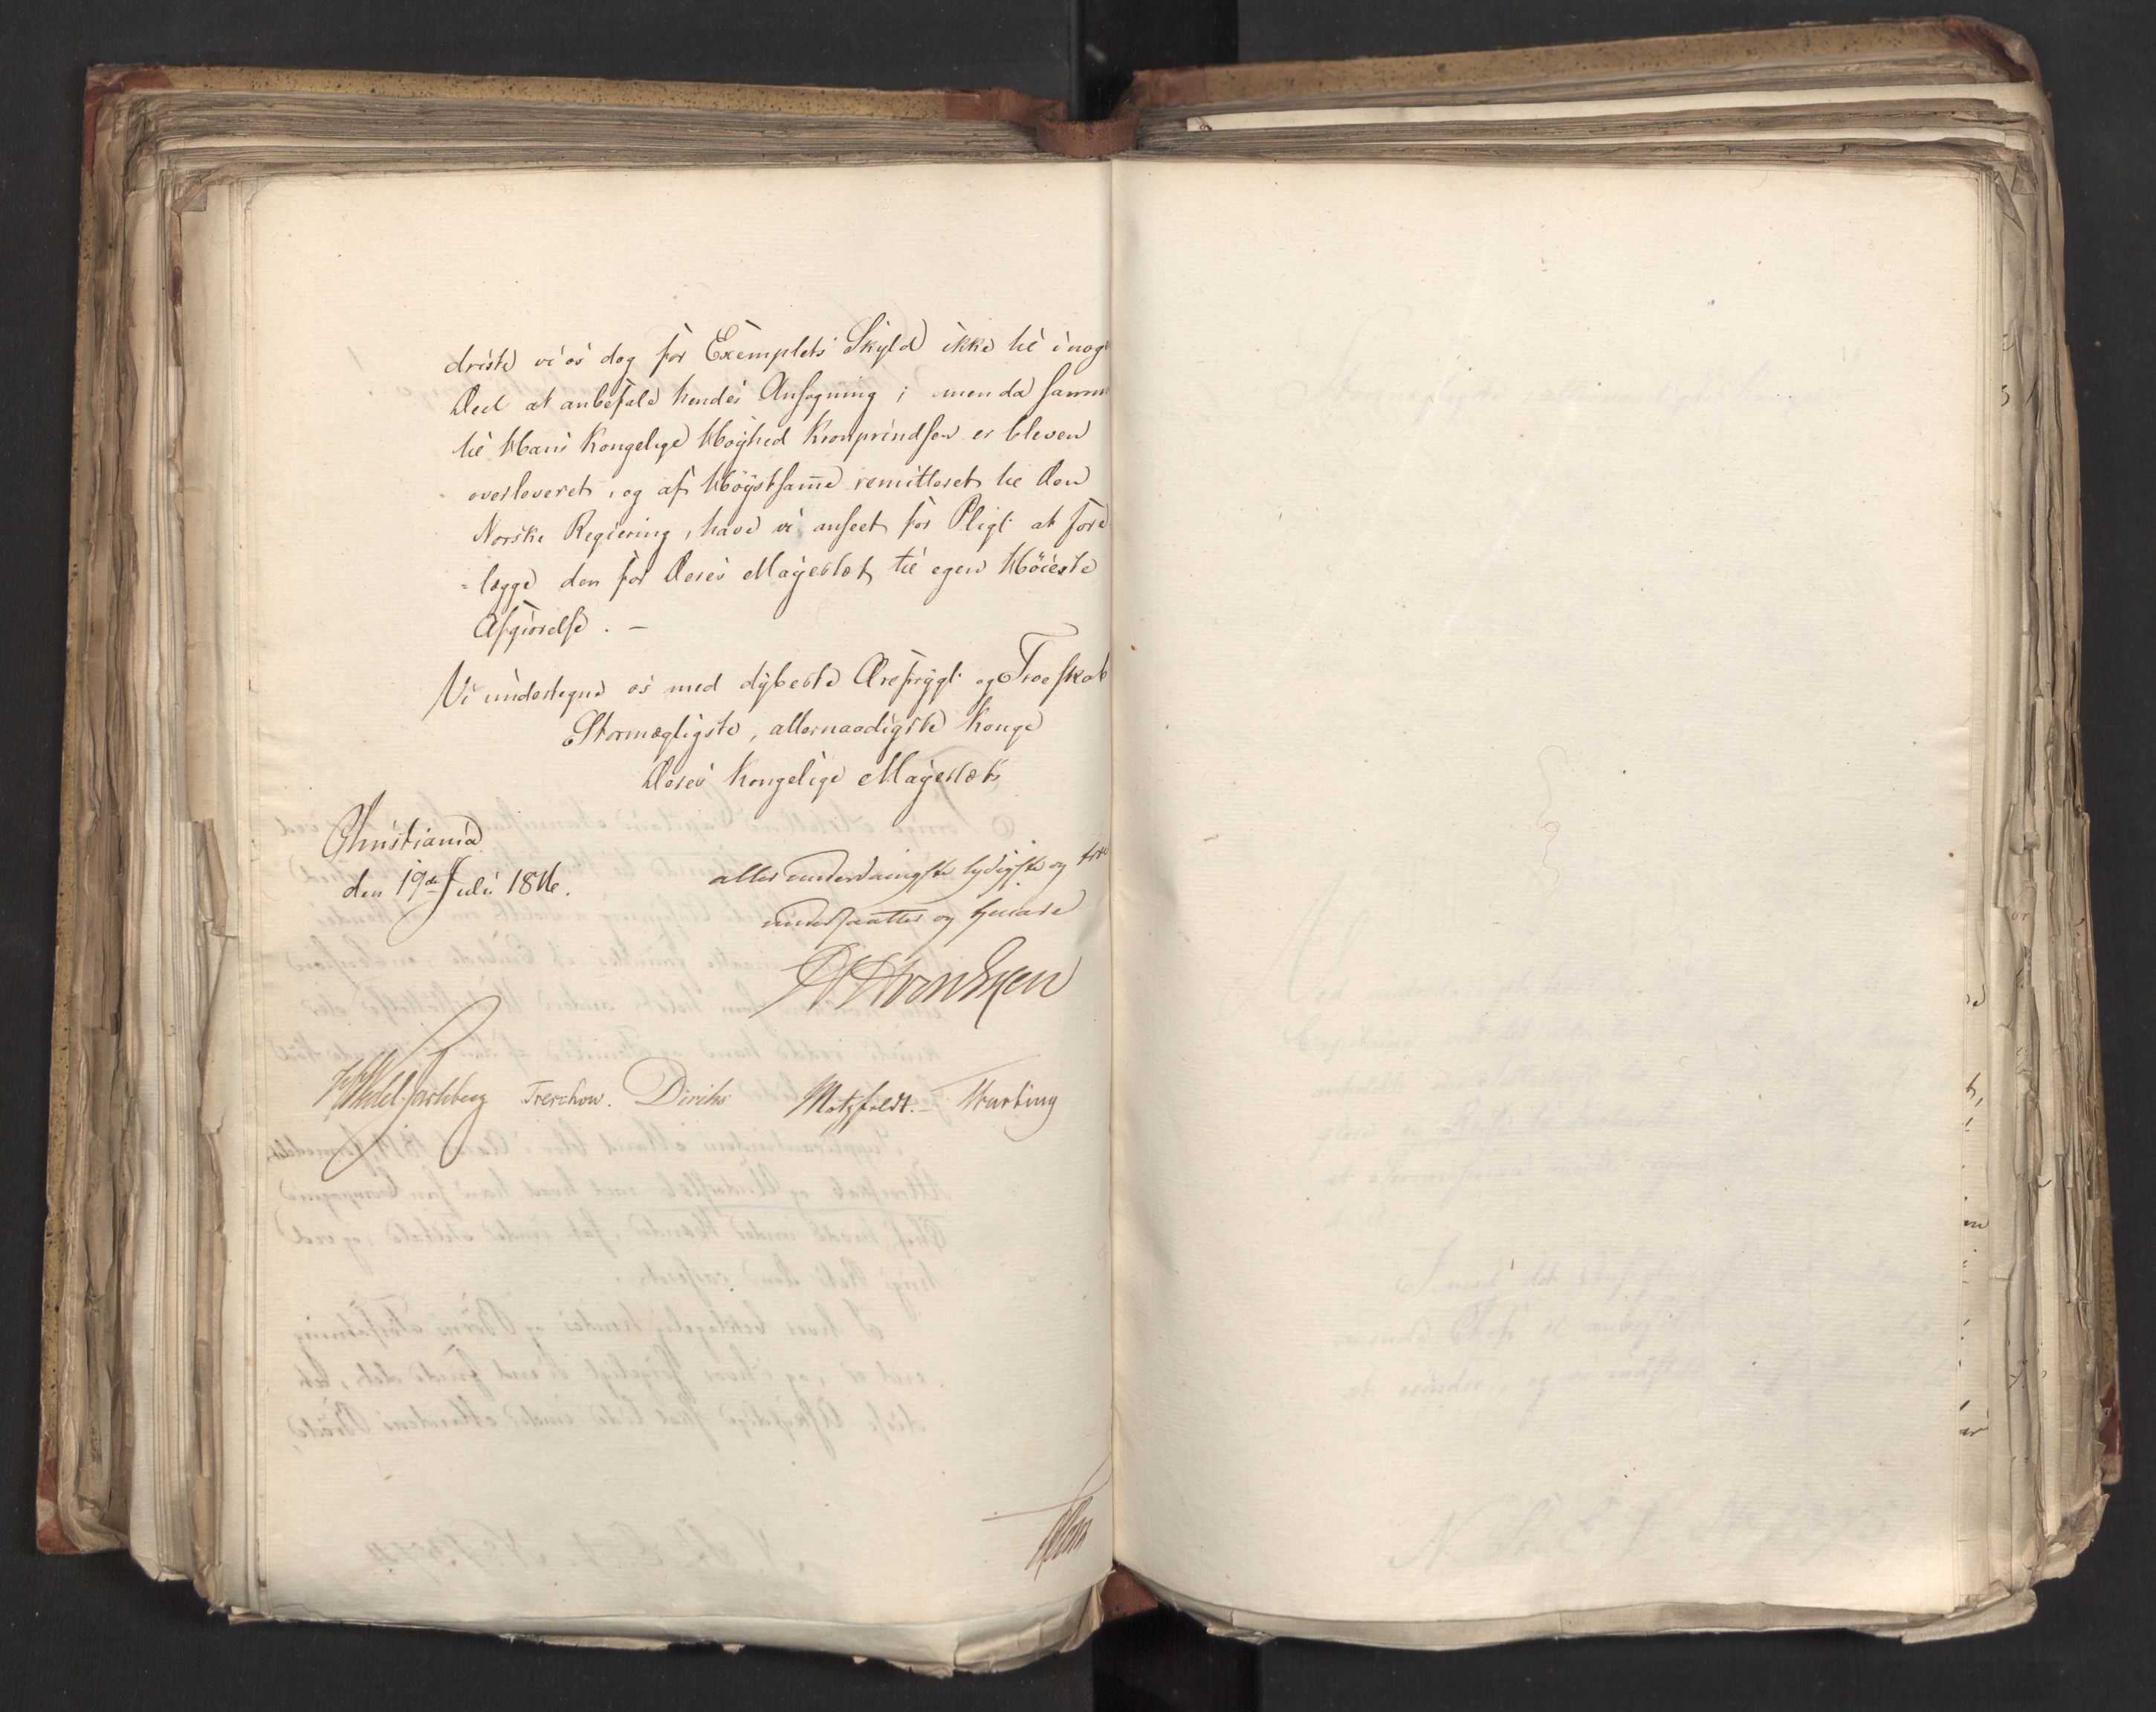 driste vi os dog for Exemplets Skyld ikke til i nog
Deel at anbefale hendes Ansøgning; men da samme
til Hans Kongelige Høyhed Kronprindsen er bleven
overleveret, og af Høystsam̅e remitteret til den
Norske Regiering, have vi anseet for Pligt at fore
=lægge den for Deres Mayestæt til egen Høieste
Afgiørelse. —
Vi undertegne os med dybeste Ærefrygt og Troeskab
Stormægtigste, allernaadigste Konge
Deres Kongelige Mayestæts
Christiania
den 19de Juli 1816.
allerunderdanigste lydigste og troe
undersaatter og tjenere
Wedel Jarlsberg Treschow. Diriks Motzfeldt. —